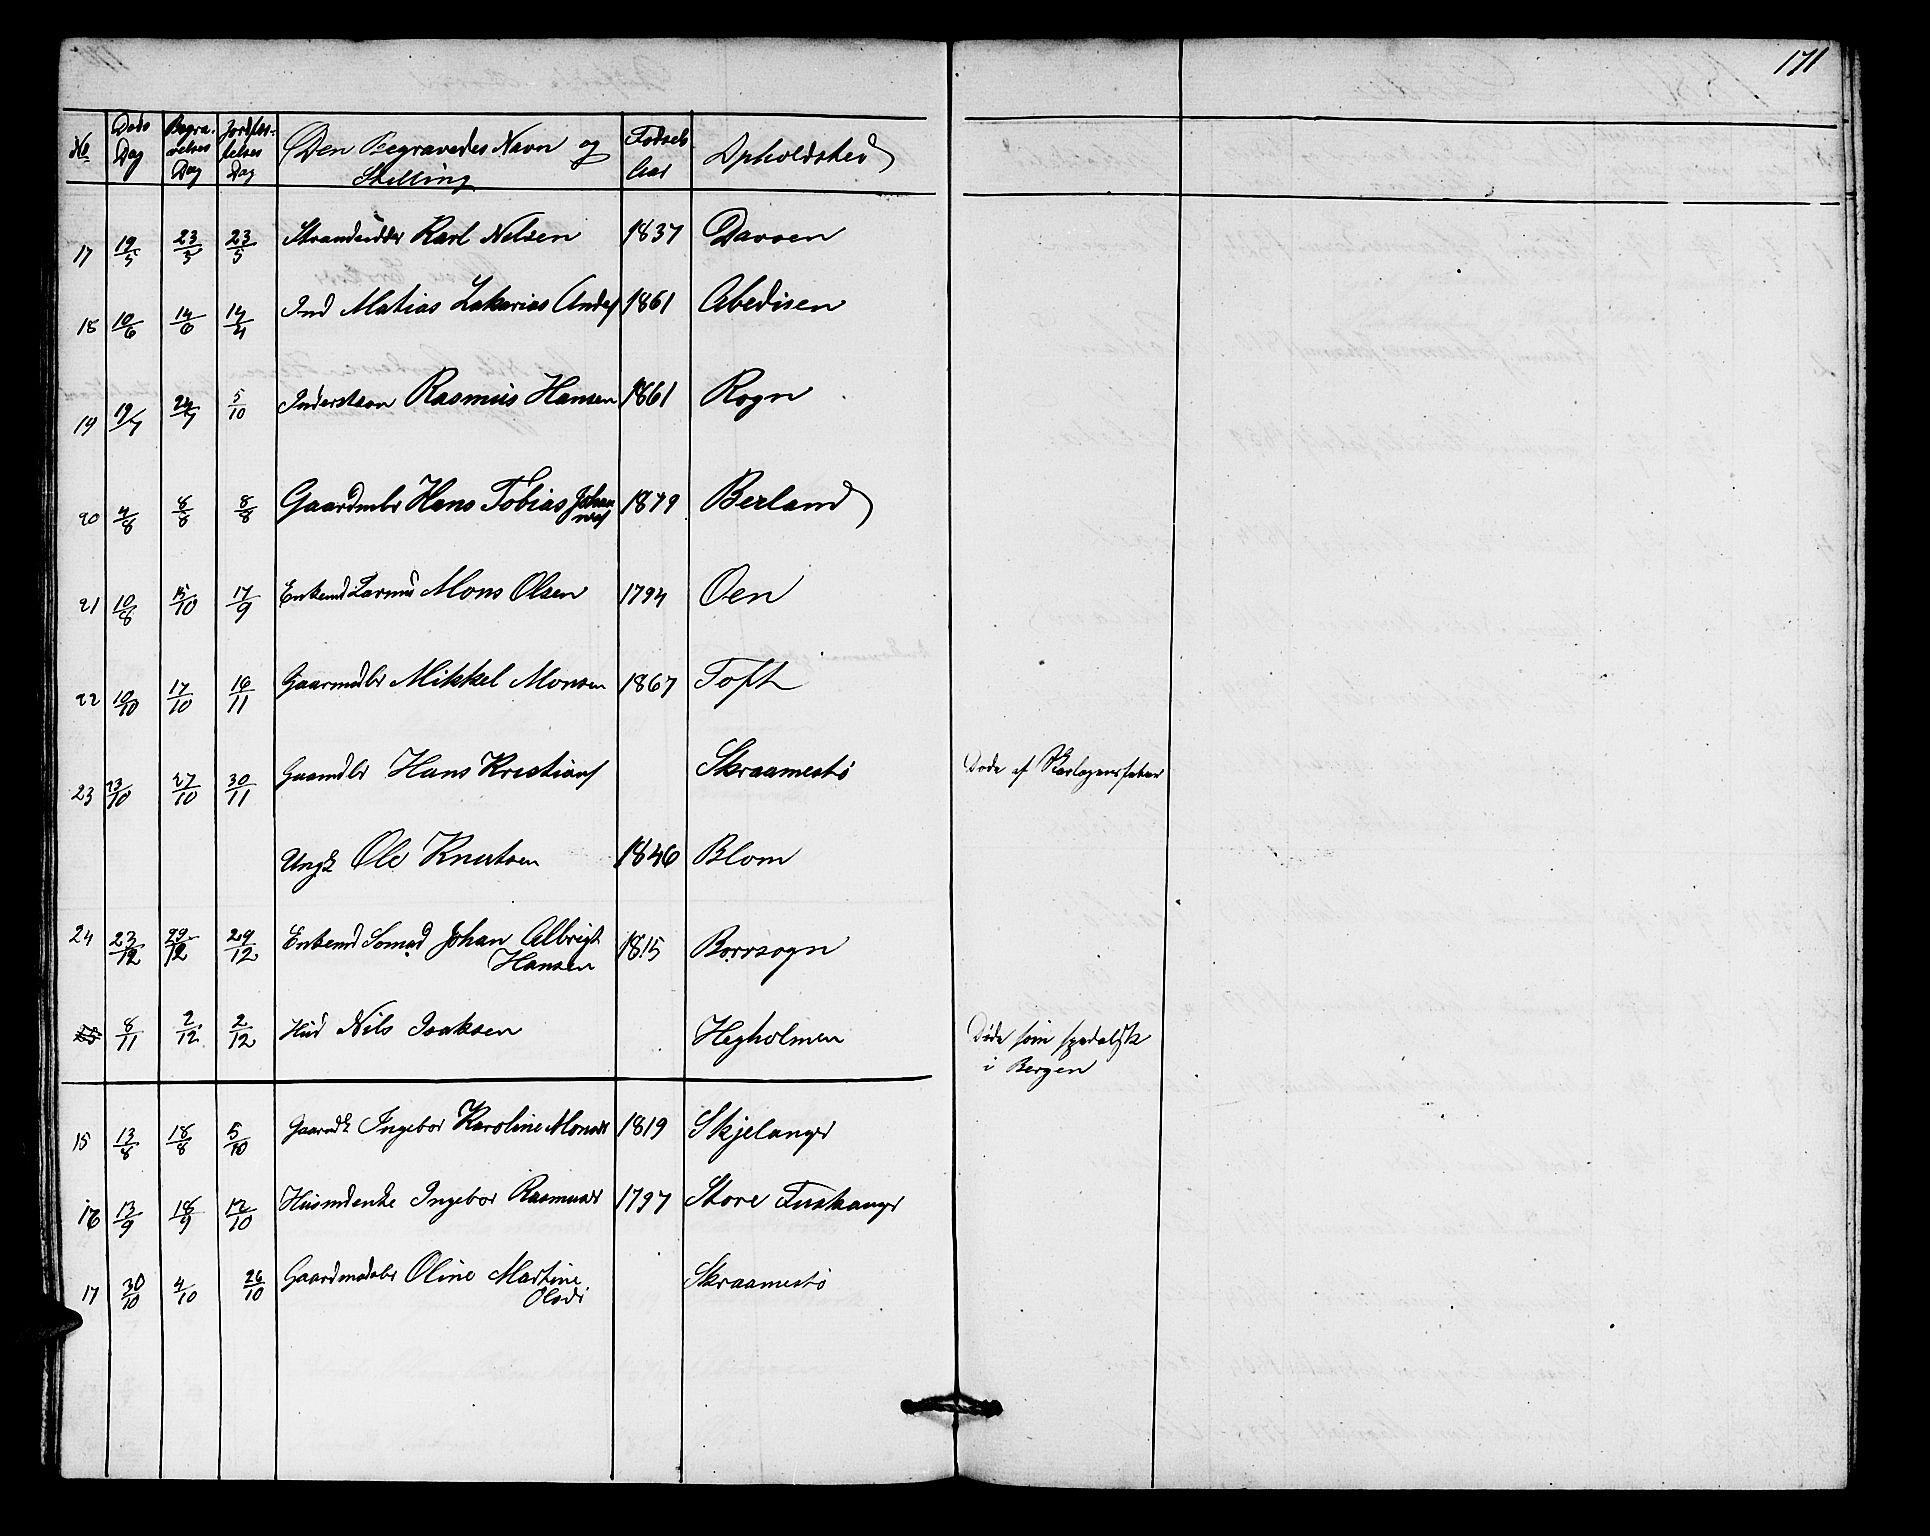 171
No Døds Dag Begra-velses Dag Jordfæs-telses Dag Den Begravedes Navn og Stilling Fødsels Aar Opholdsted
17 19/5 23/5 23/5 Strandsidder Karl Nelsen 1837 Davøen
18 10/6 14/6 14/4 Ind Matias Zakarias Anders 1861 Abedisen
19 19/7 24/7 5/10 Inderstsøn Rasmus Hansen 1861 Rogn
20 4/8 8/8 8/8 Gaardmbr Hans Tobias Johannes 1879 Berland
21 10/8 15/10 17/9 Enkemd Mons Olsen 1794 Oen
22 10/10 17/10 16/11 Gaarmdbr Mikkel Monsen 1867 Toft
23 23/10 27/10 30/11 Gaamdbr Hans Kristians Skraamestø Døde af Skarlagensfeber
Ungk Ole Knutsen 1846 Blom
24 23/12 29/12 29/12 Enkemd Sømad Johan Albrigt Hansen 1815 Borrsogn
25 8/11 2/12 2/12 Hud Nils Isaksen Hegholmen Døde som spedalsk
i Bergen
15 13/8 18/8 5/10 Gaardk Ingebor Karoline Monsdr 1819 Skjelangr
16 13/9 18/9 12/10 Husmdenke Ingebor Rasmusdr 1797 Store Fuskangr
17 30/10 4/10 26/10 Gaardmdsbr Oline Martine Olsdr Skraamestø